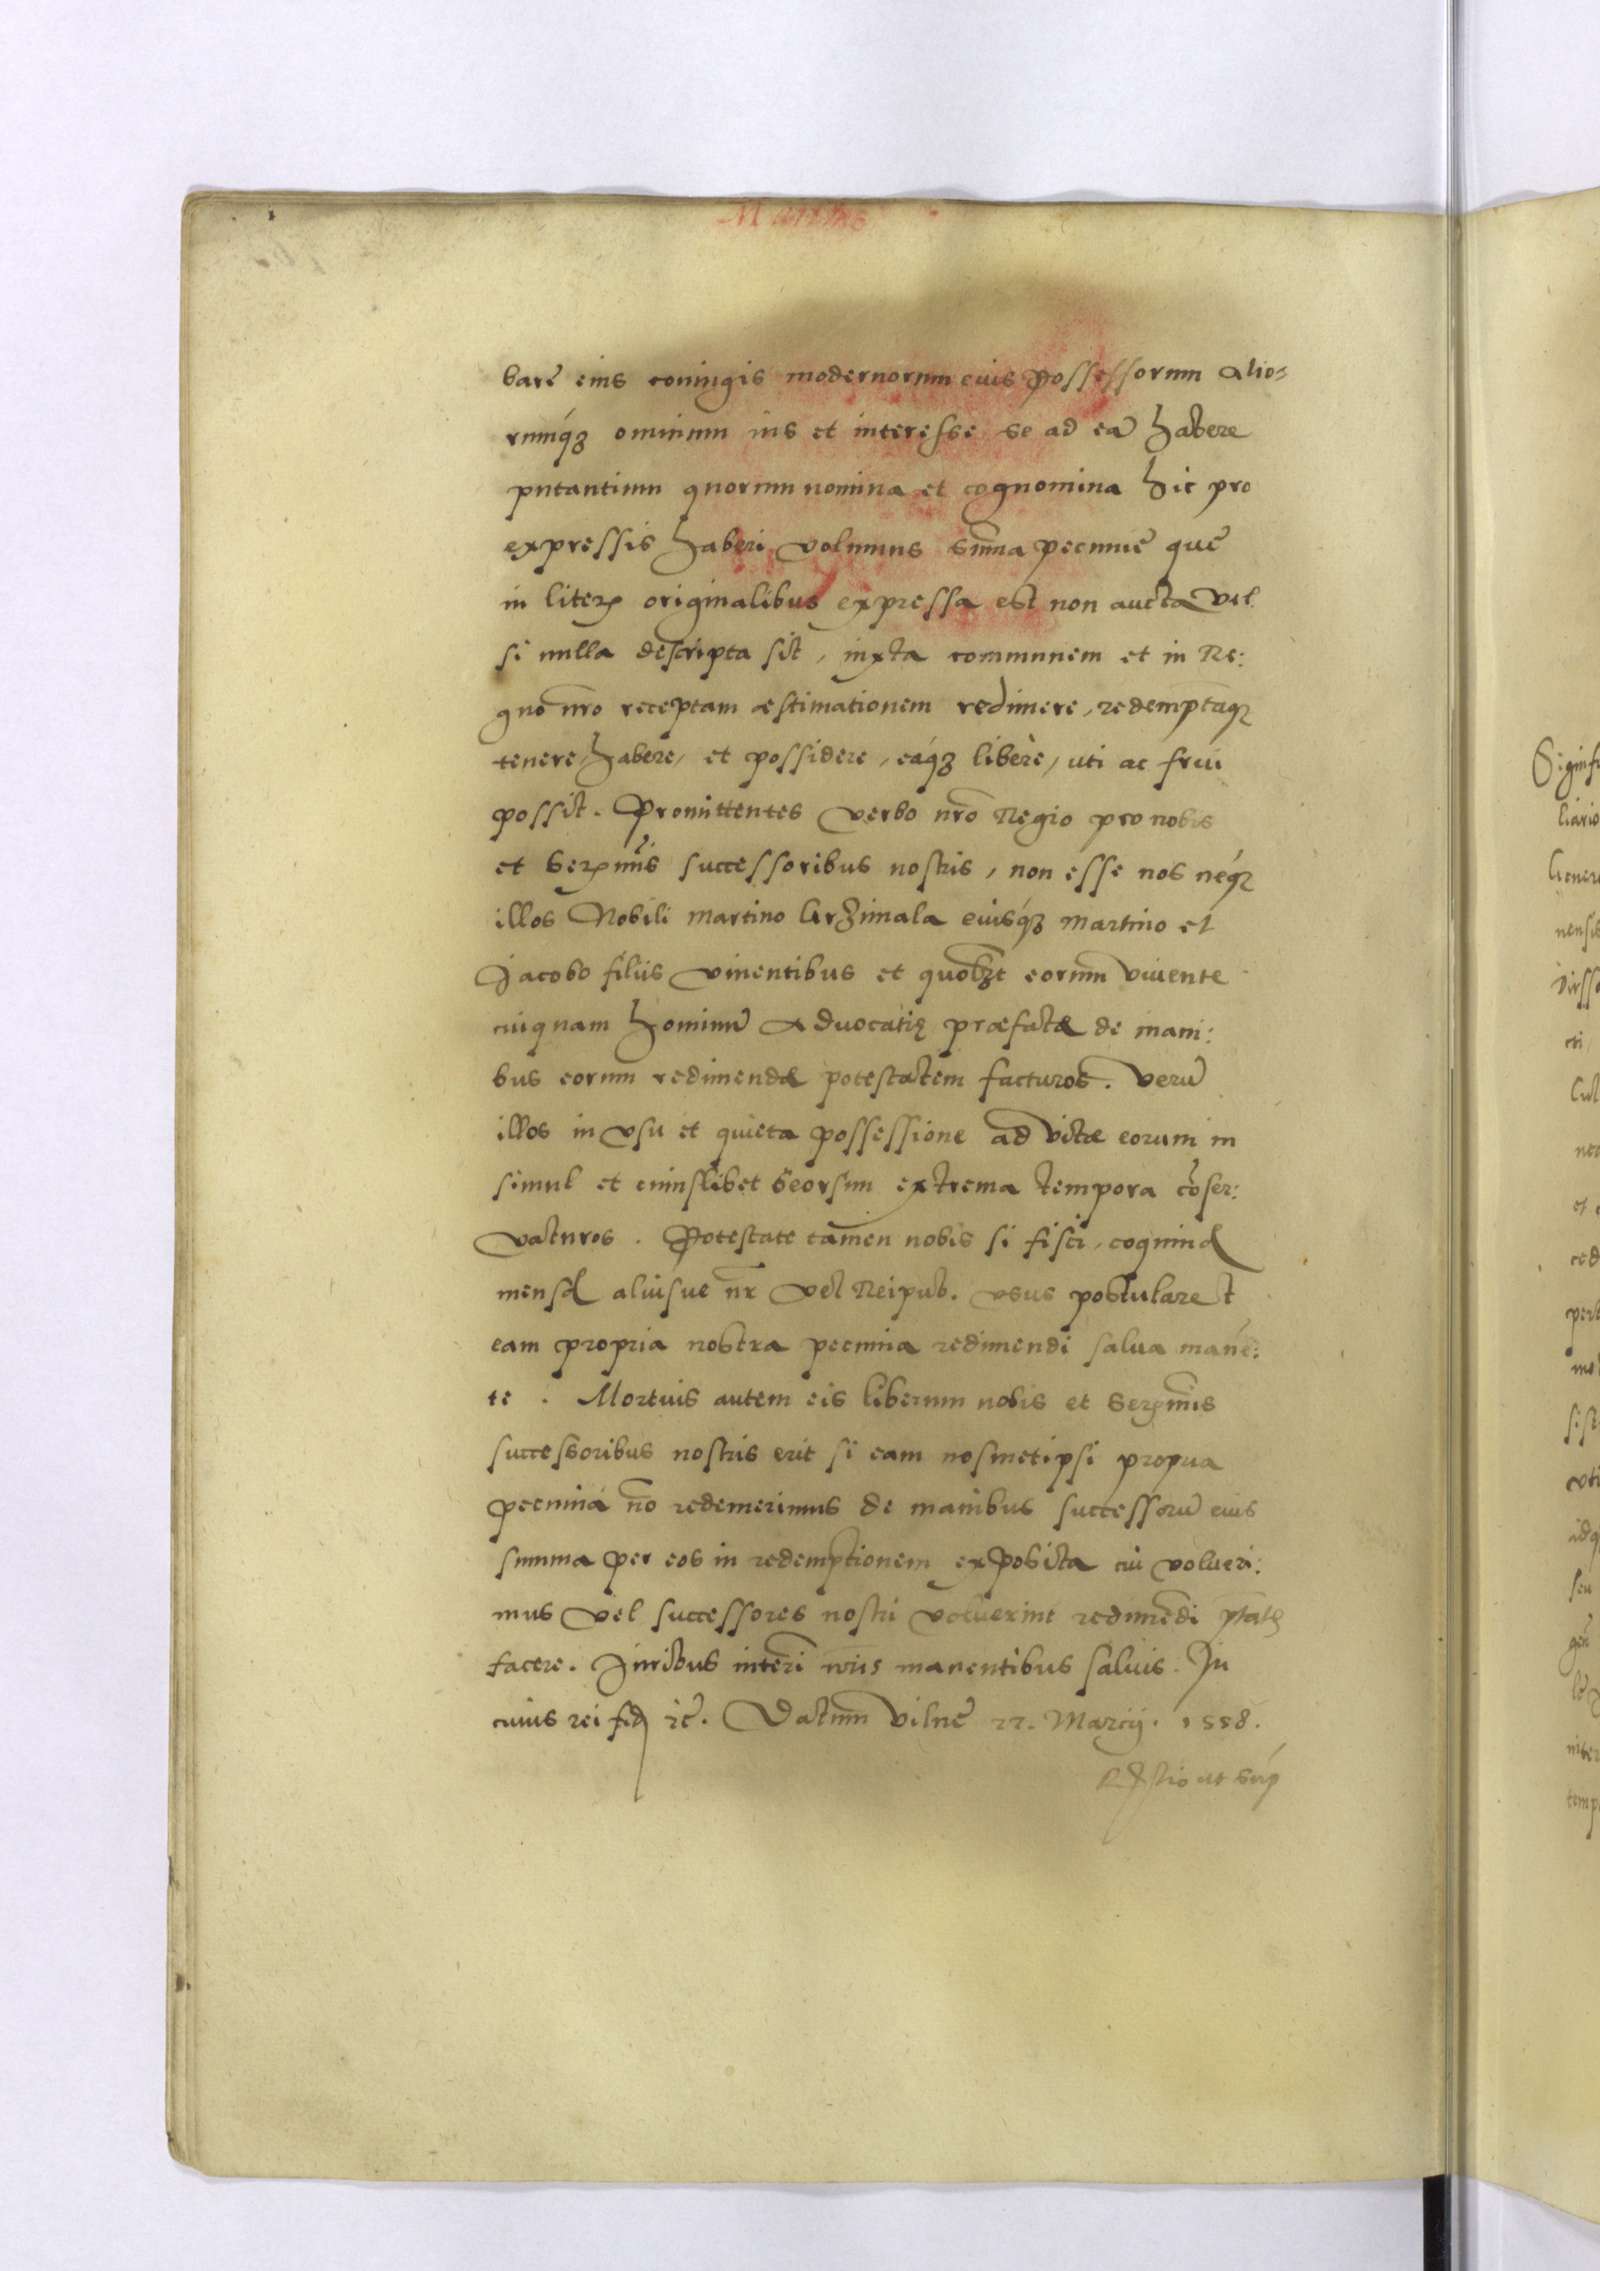 barē eius coniugis modernorum eius Possessorum Alio=
rumq́ꝫ omnium ius et interesse se ad eā habere
putantium quorum nomina et cognomina hic pro
expressis haberi volumus sum̄a pecuniē quē
in literꝭ originalibus expressa est non aucta vel
si nulla descripta sit, iuxta communem et in Re:
gno nr̄o receptam æstimationem redimere, redemptaq́ꝫ
tenere, habere, et possidere, eaq́ꝫ liberè, uti ac frui
possit. Promittentes verbo nr̄o Regio pro nobis
et Serꝫmis successoribus nostris, non esse nos neq́ꝫ
illos Nobili Martino Krzimala eiusq́ꝫ Martino et
Jacobo filiis viuentibus et quolꝫt eorum viuente
cuiquam hominū Aduocatię præfatæ de mani:
bus eorum redimendæ potestatem facturos. Verū
illos in vsu et quieta possessione ad vitæ eorum in
simul et cuiuslibet seorsim extrema tempora cōser:
vaturos. Potestate tamen nobis si fisci, coquinæ
mensæ aliusue nr̄ vel Reipub. vsus postularet
eam propria nostra pecunia redimendi salua manē:
te. Mortuis autem eis liberum nobis et Serꝫmis
successoribus nostris erit si eam nosmetipsi propria
pecunia nō redemerimus de manibus successorū eius
summa per eos in redemptionem exposita cui volueri:
mus vel successores nostri voluerint redimēdi ptātē
facere. Juribus interī nr̄is manentibus saluis. In
cuius rei fidē &c̄. Datum Vilnē 22. Marcij. 1558.
Rl̄atio ut sup̄